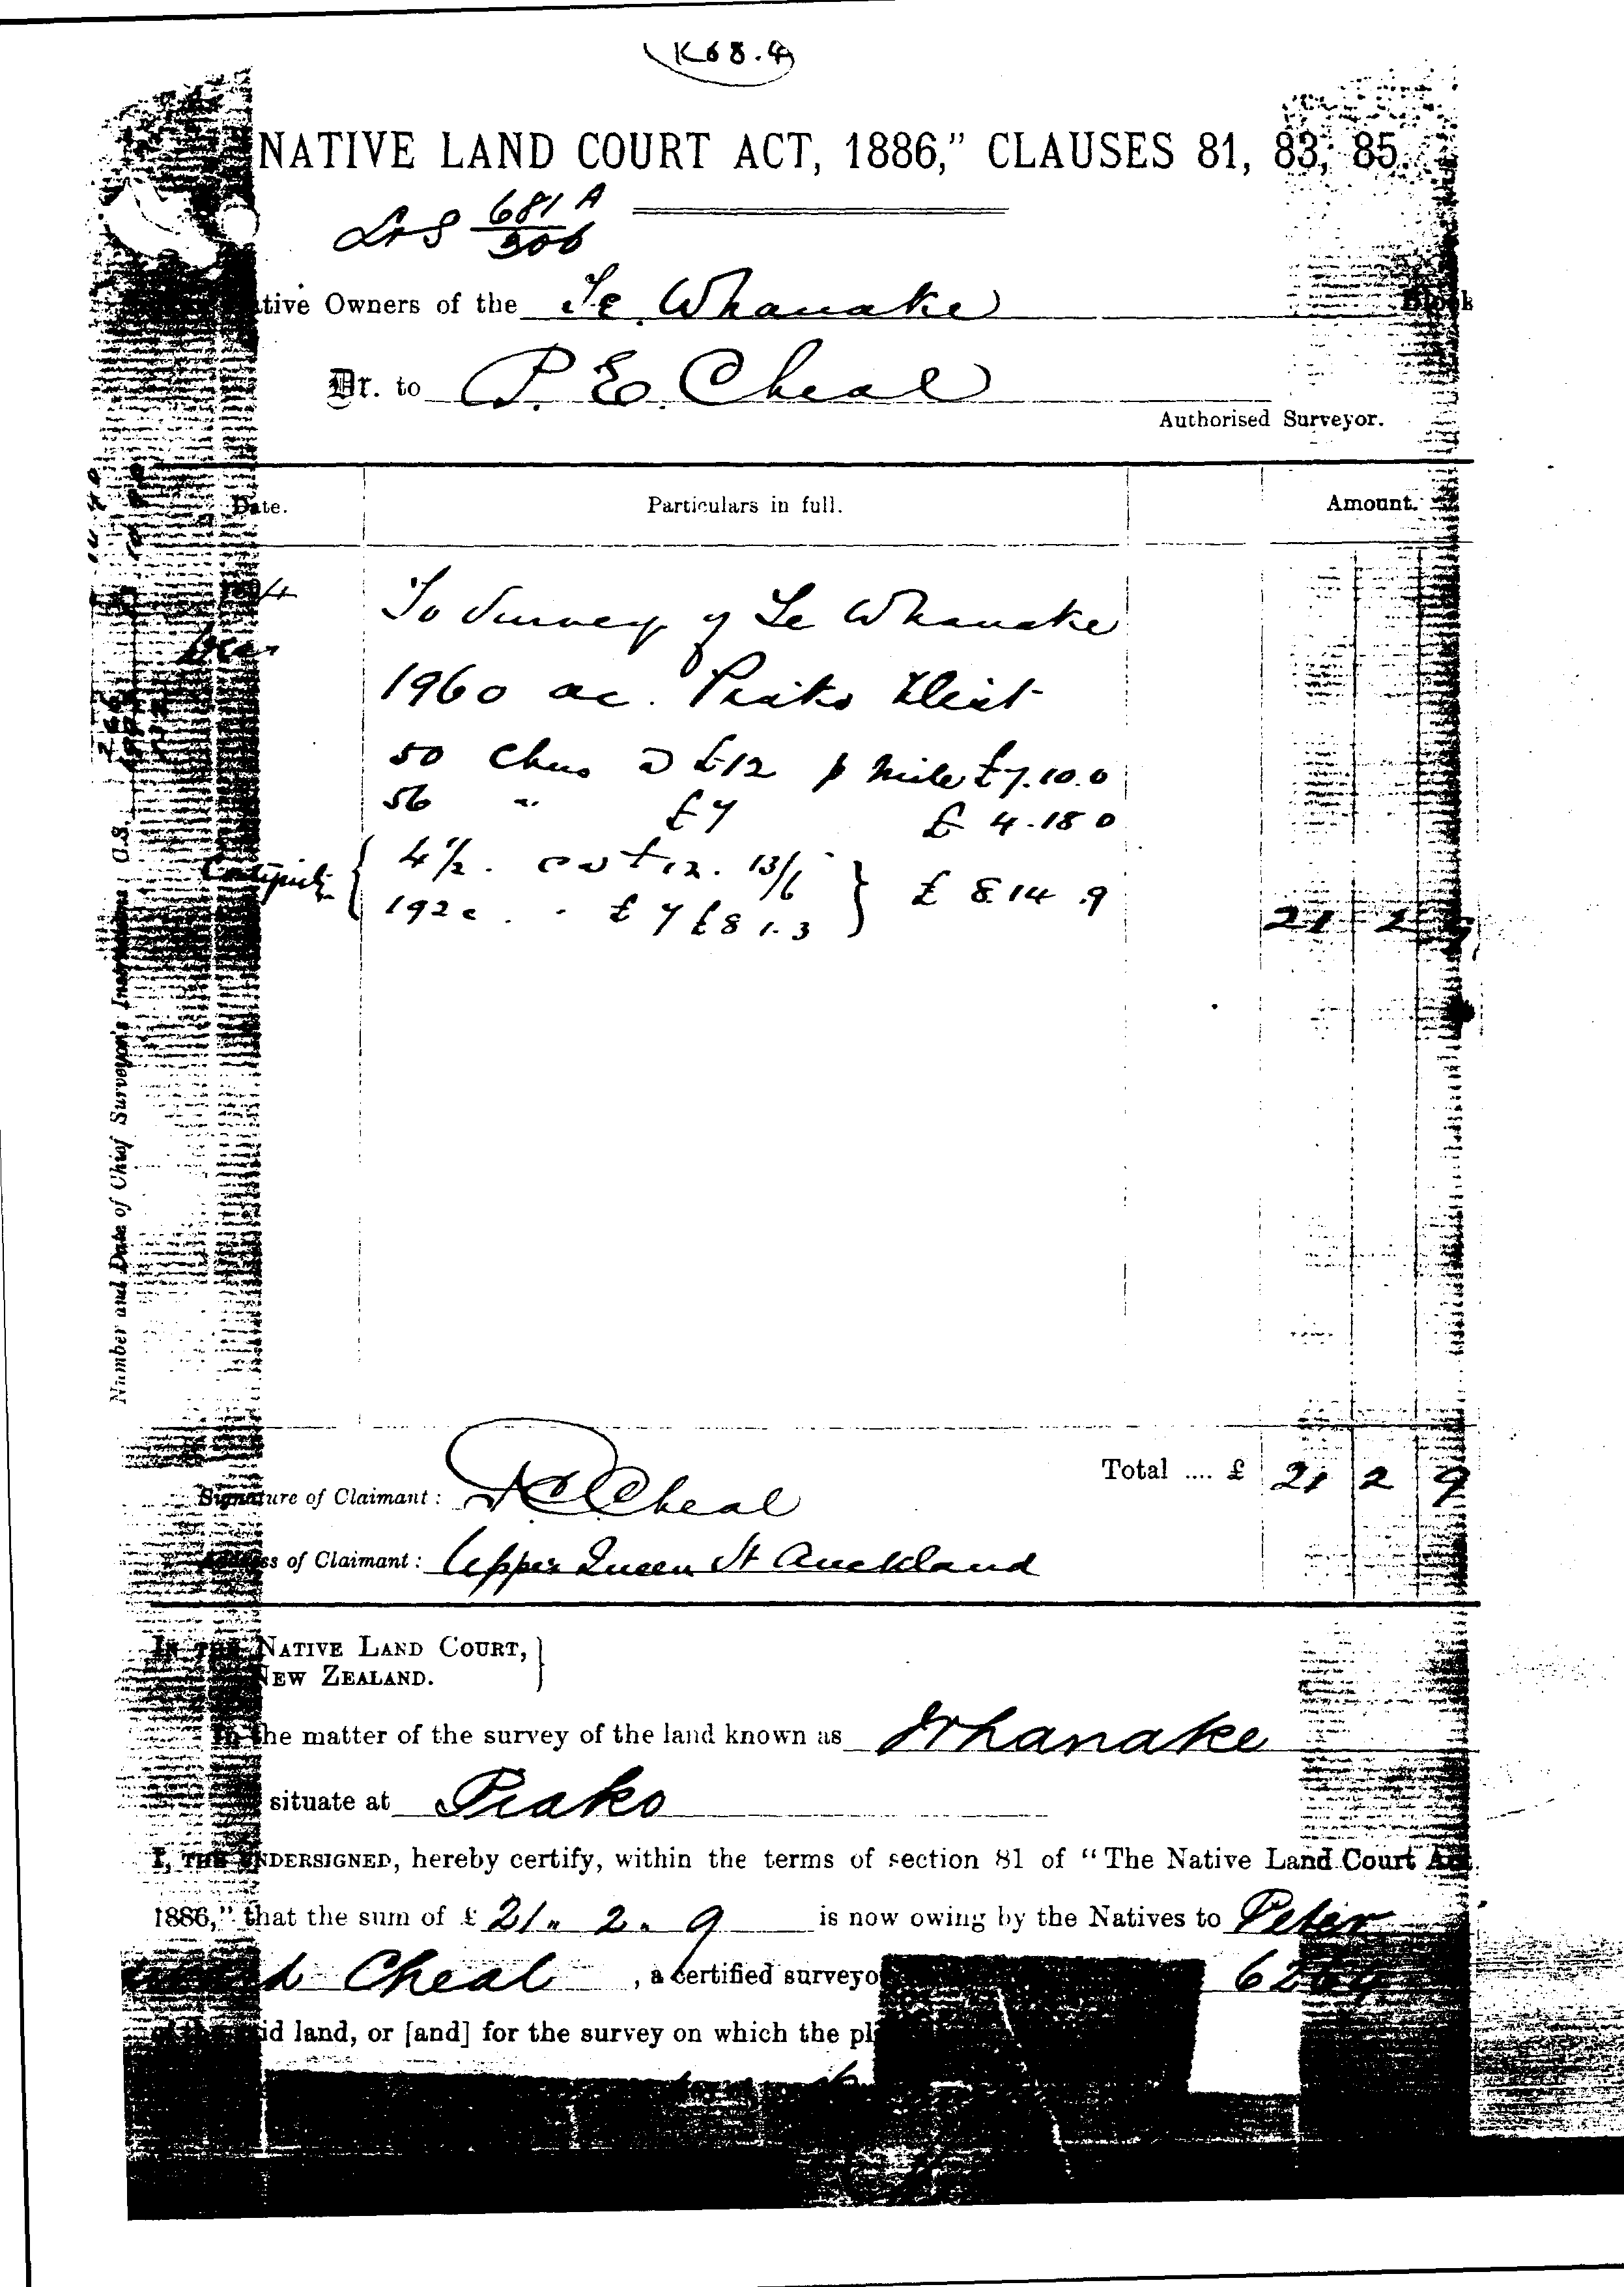 K68.4
NATIVE LAND COURT ACT, 1886,” CLAUSES 81, 83, 85.
681 A
306
tive Owners of the Te Whanake Block
Dr. to P. E. Cheal
Authorised Surveyor.
Date. Particulars in full. Amount.
To Survey of Te Whanake
Dec
1960 ac. Piako Dist
50 Chns @ £12 p mile £7.10.0
56 " £7 £ 4.18 0
4½ . 13/6
£ 8.14.9
192 £ 7 £8 1.3
21 2 9
Number and Date of Chief Surveyor's Instructions O.S.
Total .... £ 21 2 9
Signature of Claimant: P E Cheal
Address of Claimant: Upper Queen St Auckland
IN THE NATIVE LAND COURT, }
NEW ZEALAND.
In the matter of the survey of the land known as Whanake
situate at Piako
I, THE UNDERSIGNED, hereby certify, within the terms of section 81 of “The Native Land Court Act,
1886,” that the sum of £ 21. 2. 9 is now owing by the Natives to Peter
d Cheal , a certified surveyo
id land, or [and] for the survey on which the pl